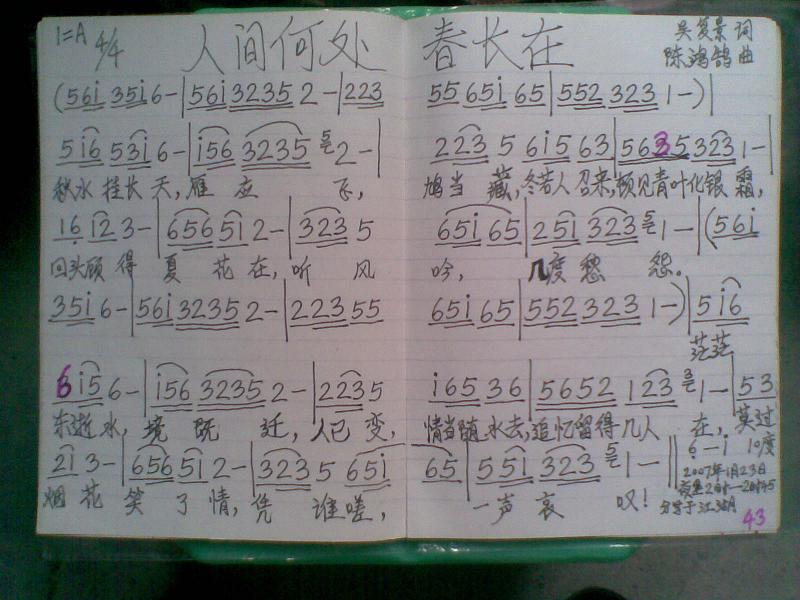 1=A 4/4 人间何处 春长在 吴复景 词
陈鸿鹄 曲
(56i 35i6-|56i 32352-|223 55 65i 65|552 323 1-)|
5i6 53i 6-|i56 3235 5 2-| 223 5 6i5 63|5635323 1-|
秋水挂长天,雁应飞, 鸠当藏,冬若人召来,顿见青叶化银霜,
16 i2 3-|656512-|323 5 65i 65|25i 323 5 1-|(56i
回头顾得夏花在,听风 吟,几度愁怨。
35i 6-|56i32352-|22355 65i 65|552 323 1-)|5i6
茫茫
6i5 6-|i56 32352-|2235 i65 36|5652 123 3 1-|53
东逝水,境既迁,人已变, 情当随水去,追忆留得几人在,莫过
2i 3-|656512-|323 5 65i 65|55i 323 5 1-‖6-i 10度
烟花笑了情,凭谁嗟, 一声哀叹!
2007年1月23日
43